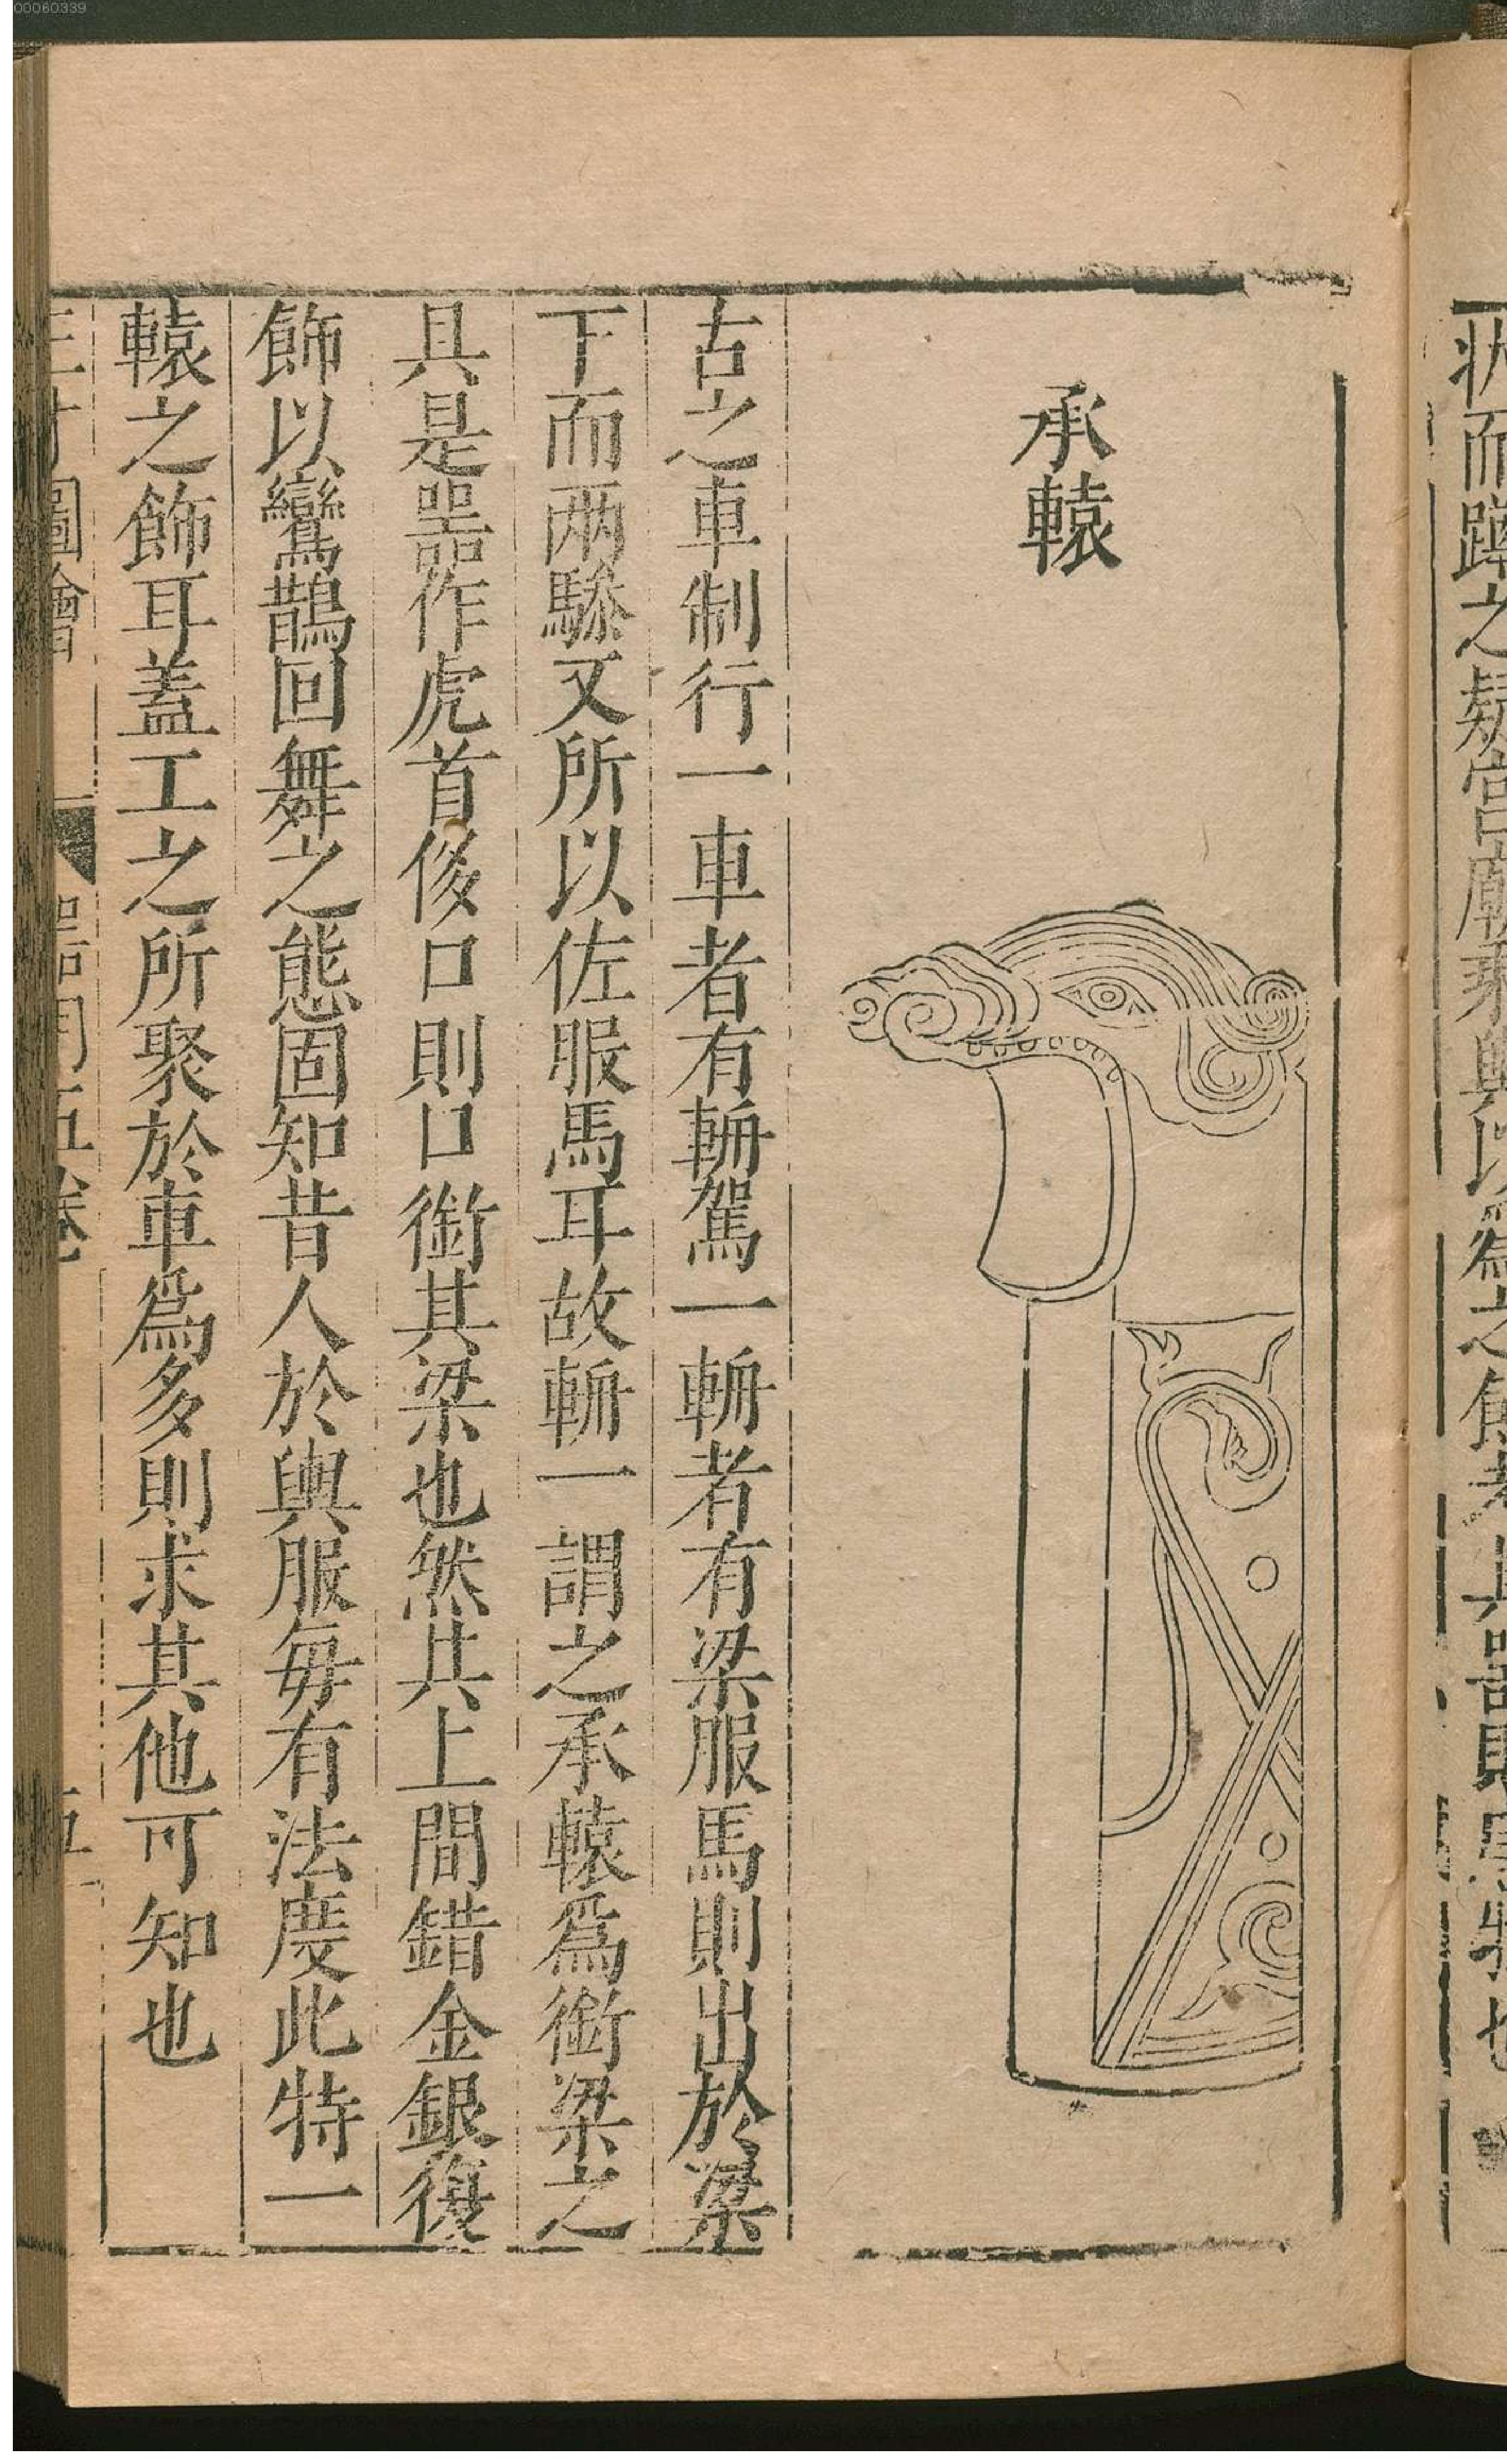 00060339
而蹲之疑宮廟乘輿以爲之飾者其
承轅
古之車制行一車者有輈駕一輈者有梁服馬則出於梁
下而两驂又所以佐服馬耳故輈一謂之承轅爲銜梁之
具是噐作虎首侈口則口銜其梁也然其上間錯金銀復
飾以鸞鵲回舞之態固知昔人於輿服每有法度此特一
轅之飾耳蓋工之所聚於車爲多則求其他可知也
三才圖會 器用五卷